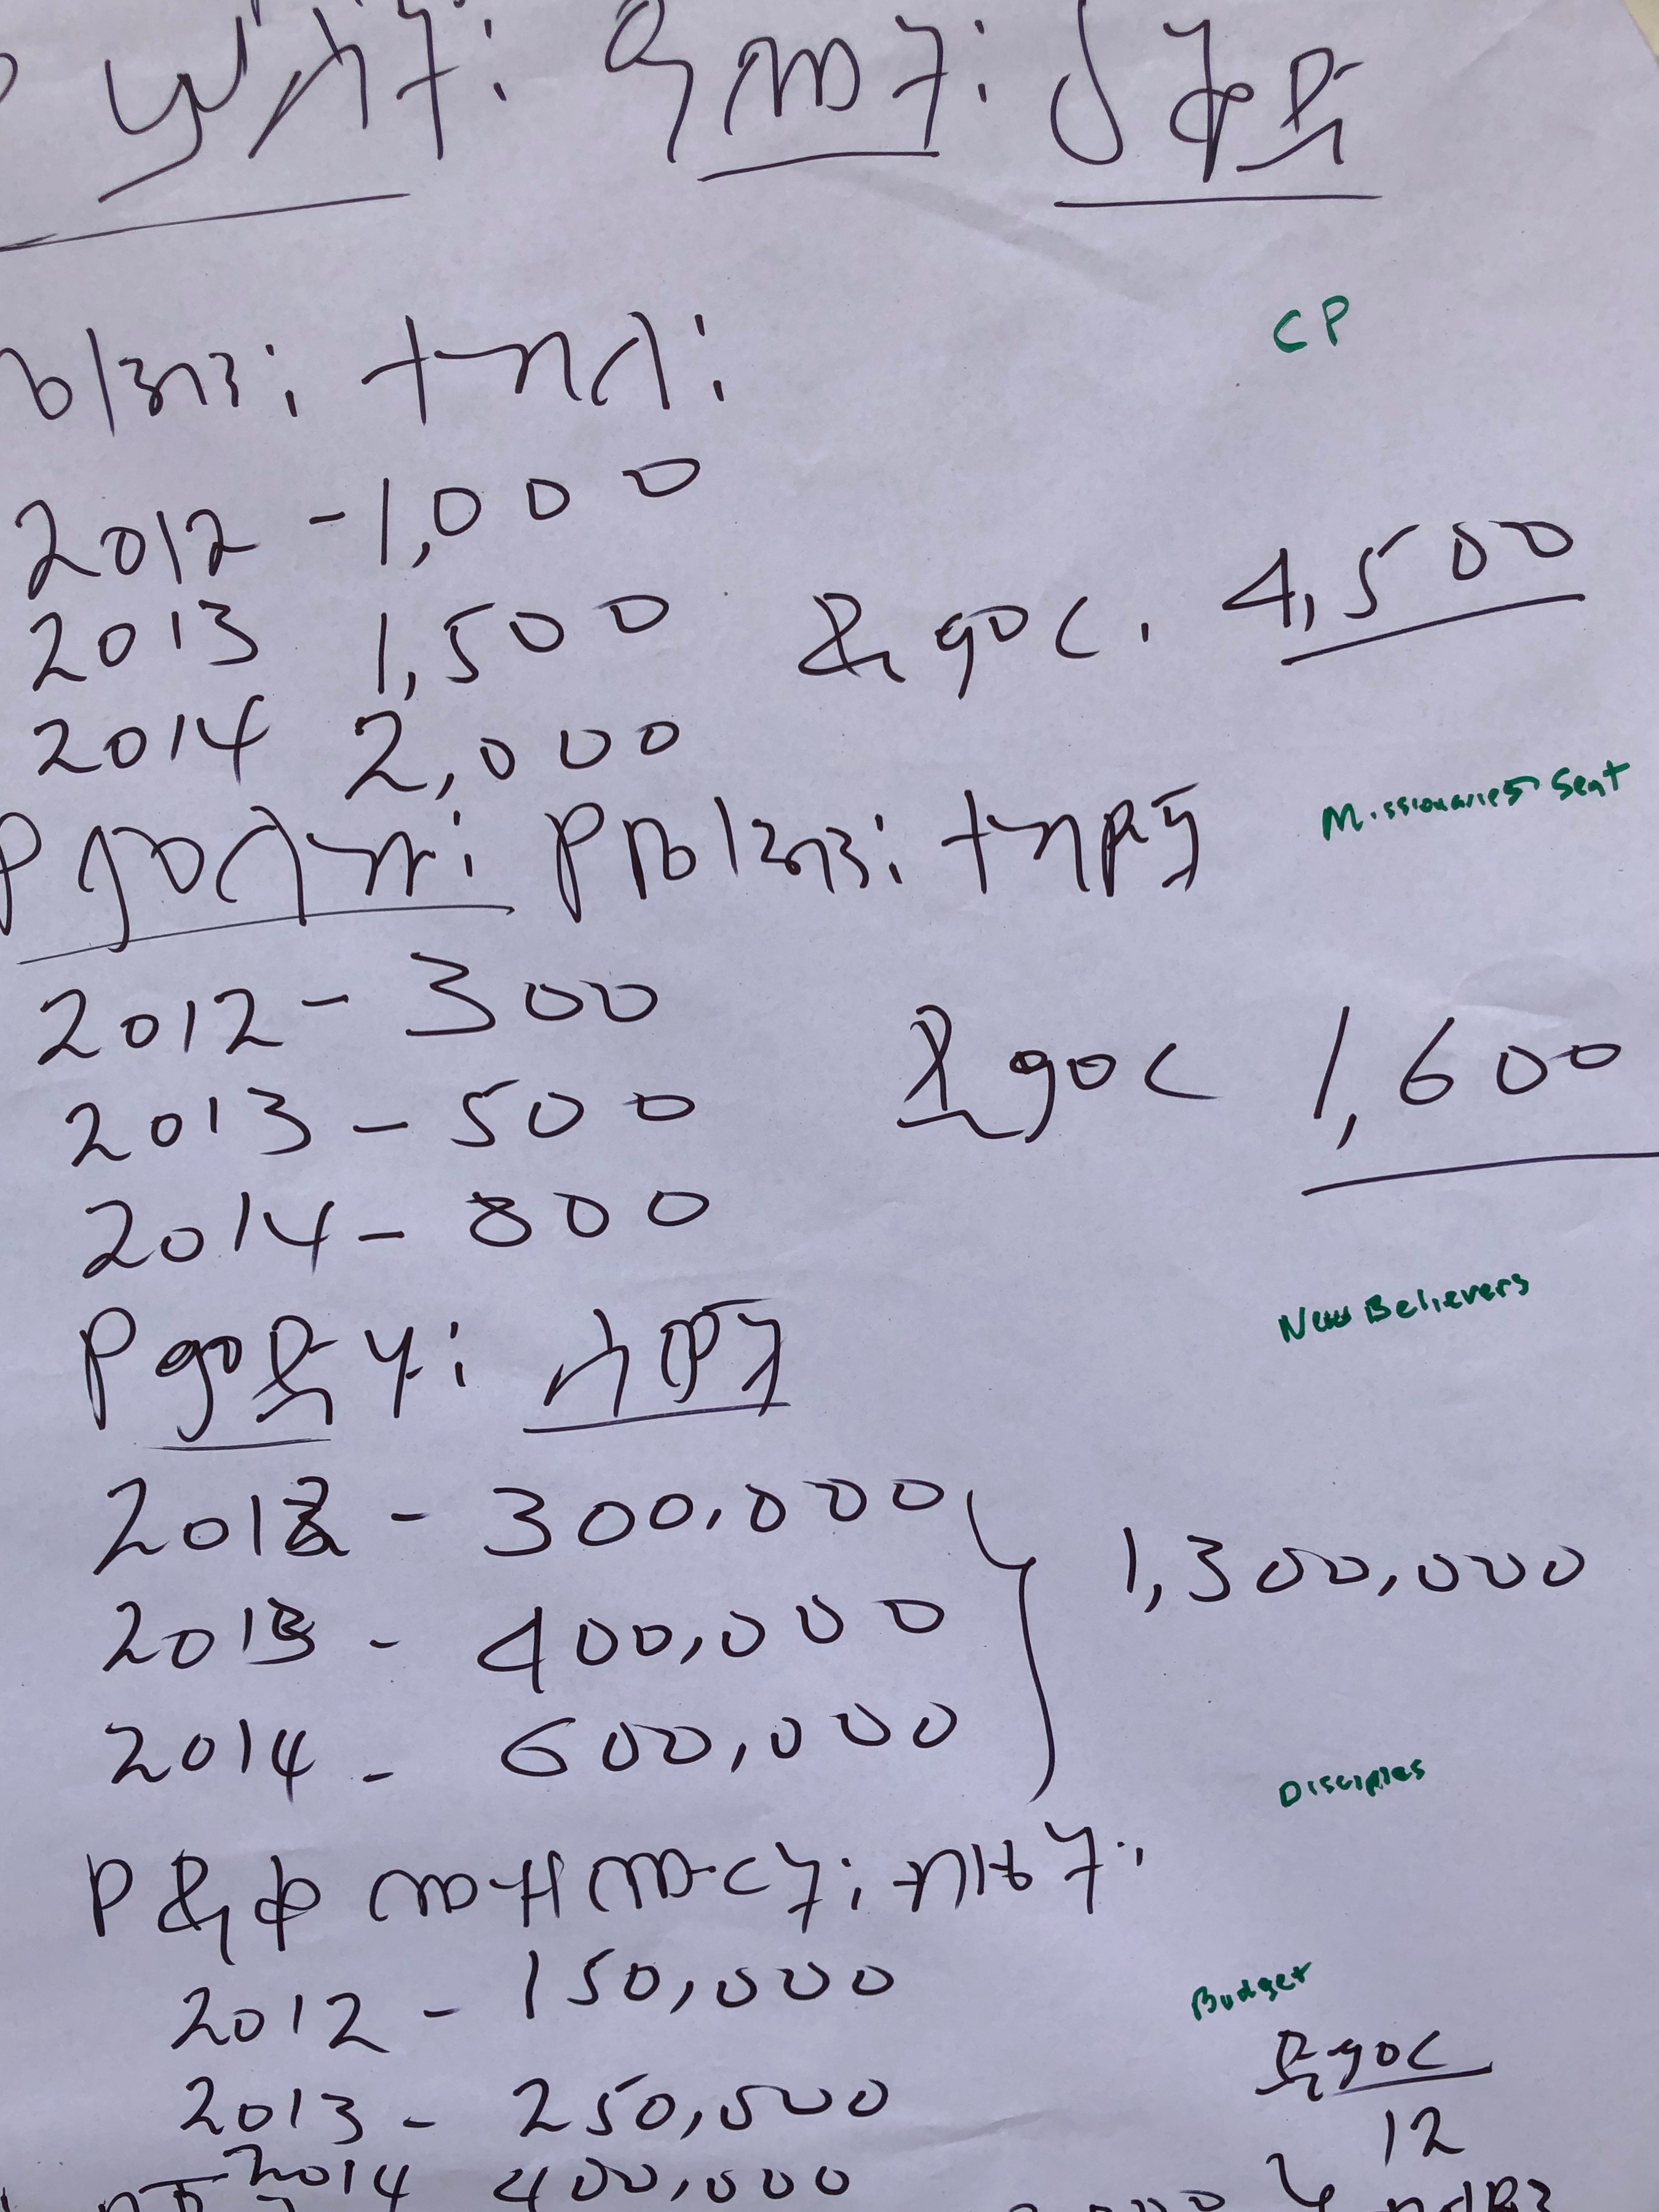 የሦስት ዓመት ዕቅድ
CP
ቤ/ክን፡ ተከላ፡
2012 - 1,000
2013 1,500 ድምር. 4,500
2014 2,000
Missionaries Sent
የምስጉ፡ የቤ/ክን፡ ተካዮች
2012 - 300
2013 - 500 ድምር 1,600
2014 - 800
New Believers
የምድኑ፡ ሰዎች
2012 - 300,000
2013 - 400,000 1,300,000
2014 - 600,000
Disciples
የደቀ መዛሙርት፡ ብዛት፡
2012 - 150,000
Budget
ድምር
2013 - 250,500
12
2014 400,000